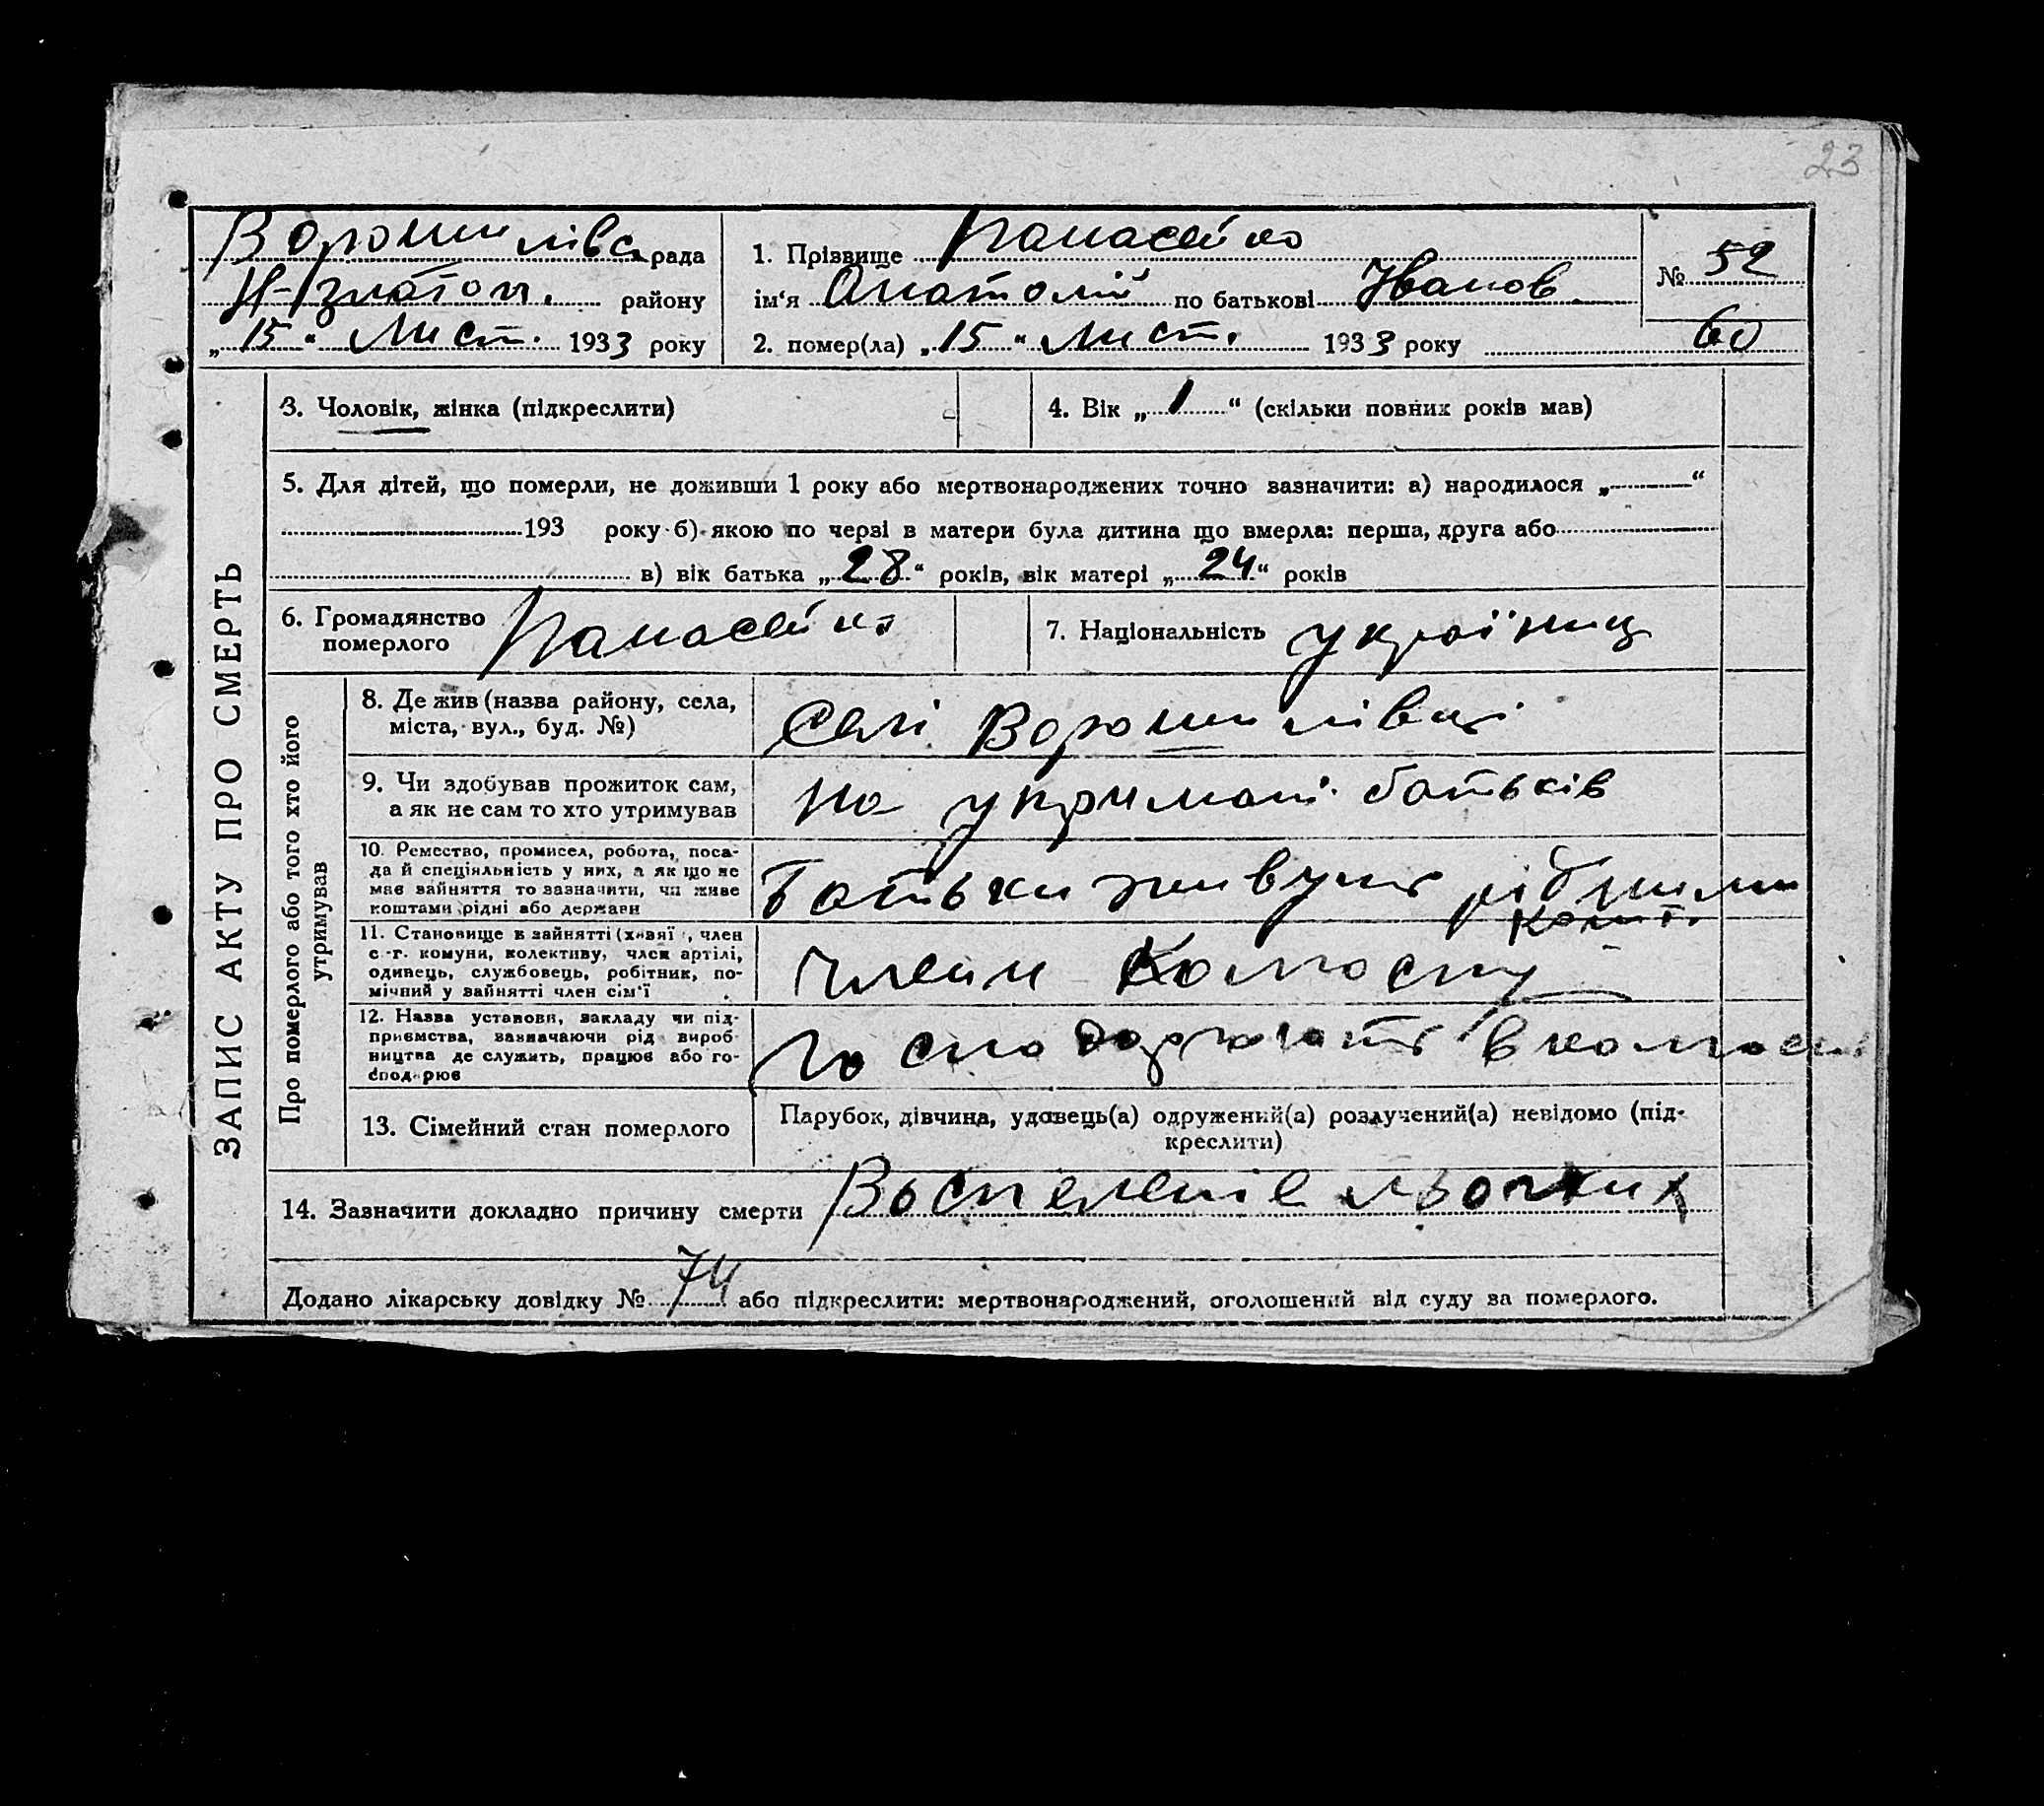 23
Ворошилівс. рада
Н-Златоп. району
„15“ Лист. 1933 року
1. Прізвище Панасейко
ім‘я Анатолій по батькові Іванов.
2. помер(ла) „15“ Лист. 1933 року
№ 52
60
ЗАПИС АКТУ ПРО СМЕРТЬ
3. Чоловік, жінка (підкреслити)
4. Вік „1“ (скільки повних років мав)
5. Для дітей, що померли, не доживши 1 року або мертвонароджених точно зазначити: а) народилося „—“
193 року б) якою по черзі в матери була дитина що вмерла: перша, друга або
в) вік батька „28“ років, вік матері „24“ років
6. Громадянство
померлого Панасейко
7. Національність українц
Про померлого або того хто його
утримував
8. Де жив (назва району, села,
міста, вул., буд. №)
Селі Ворошилівці
9. Чи здобував прожиток сам,
а як не сам то хто утримував
на укримані батьків
10. Ремество, промисел, робота, поса-
да й спеціяльність у них, а як що не
має зайняття то зазначити, чи живе
коштами рідні або держави
Батьки живуть рібними
кошт.
11. Становище в зайнятті (хазяї , член
с.-г. комуни, колективу, член артілі,
одинець, службовець, робітник, по-
мічний у зайнятті член сім‘ї
члени Колгоспу
12. Назва установи, закладу чи під-
приємства, зазначаючи рід вироб-
ництва де служить, працює або го-
сподарює
господарюють в колгоспі
13. Сімейний стан померлого
Парубок, дівчина, удовець(а) одружений(а) розлучений(а) невідомо (під-
креслити)
14. Зазначити докладно причину смерти Воспеленіе льогких
Додано лікарську довідку № 74 або підкреслити: мертвонароджений, оголошений від суду за померлого.